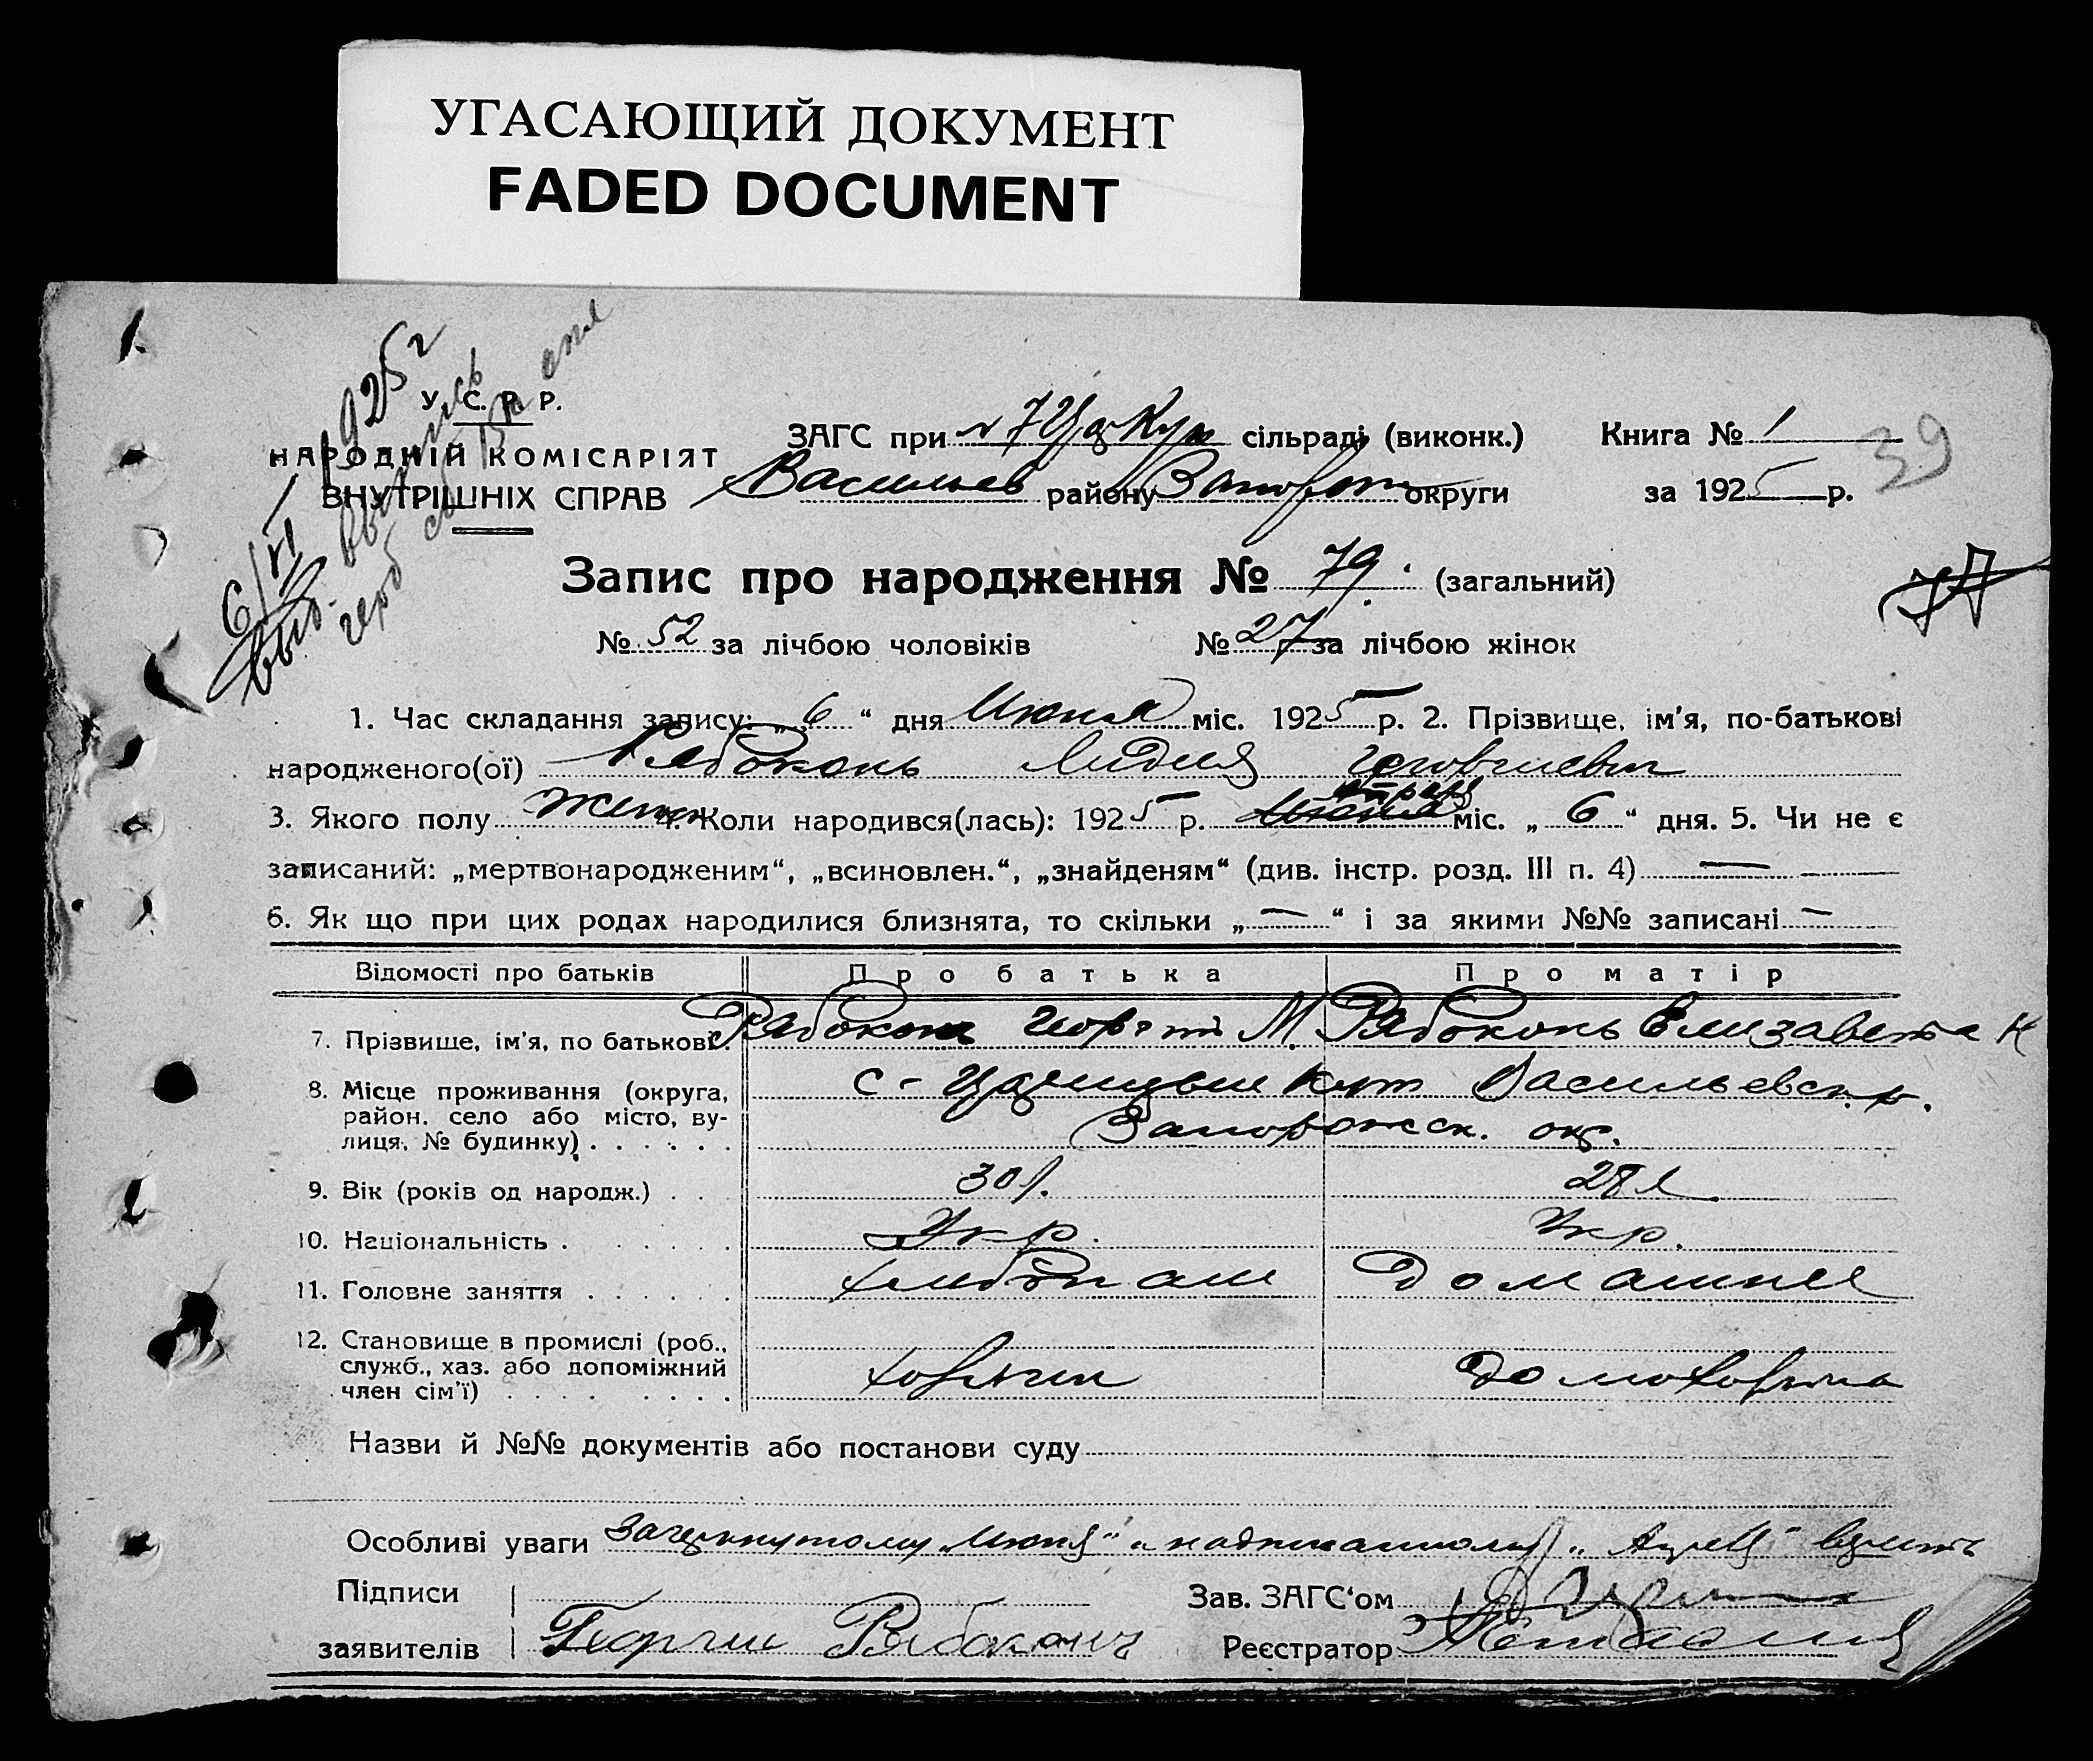 УГАСАЮЩИЙ ДОКУМЕНТ
FADED DOCUMENT
1925 г
У. С. Р. Р.
НАРОДНІЙ КОМІСАРІЯТ
ВНУТРІШНІХ СПРАВ
6/VI
ЗАГС при сільраді (виконк.) Книга № 1
39
Васильев району Запорож округи за 1925 р.
Запис про народження № 79. (загальний)
№ 52 за лічбою чоловіків № 27 за лічбою жінок
1. Час складання запису: „ 6 “ дня Июня міс. 1925 р. 2. Прізвище, ім'я, по-батькові
народженого(ої) Рябоконь Лидия Георгиевна
3. Якого полу женск 4. Коли народився(лась): 1925 р. Июня апреля міс. „ 6 “ дня. 5. Чи не є
записаний: „мертвонародженим“, „всиновлен.“, „знайденям“ (див. інстр. розд. III п. 4) —
6. Як що при цих родах народилися близнята, то скільки „ — “ і за якими №№ записані —
Відомості про батьків Про батька Про матір
7. Прізвище, ім'я, по батькові. Рябоконь Георгий М. Рябоконь Елизавета К
8. Місце проживання (округа, район, село або місто, вулиця, № будинку) с - Царицын Кут Васильевск. р.
Запорожск. окр.
9. Вік (років од народж.) 30 л. 28 л
10. Національність Укр. Укр.
11. Головне заняття хлебопаш Домашнее
12. Становище в промислі (роб., служб., хаз. або допоміжний член сім'ї) хозяин домохозяйка
Назви й №№ документів або постанови суду
Особливі уваги Зачеркнутому „Июня“ и надписанному „ верить
Підписи Зав. ЗАГС'ом
заявителів Георгий Рябоконь Реєстратор